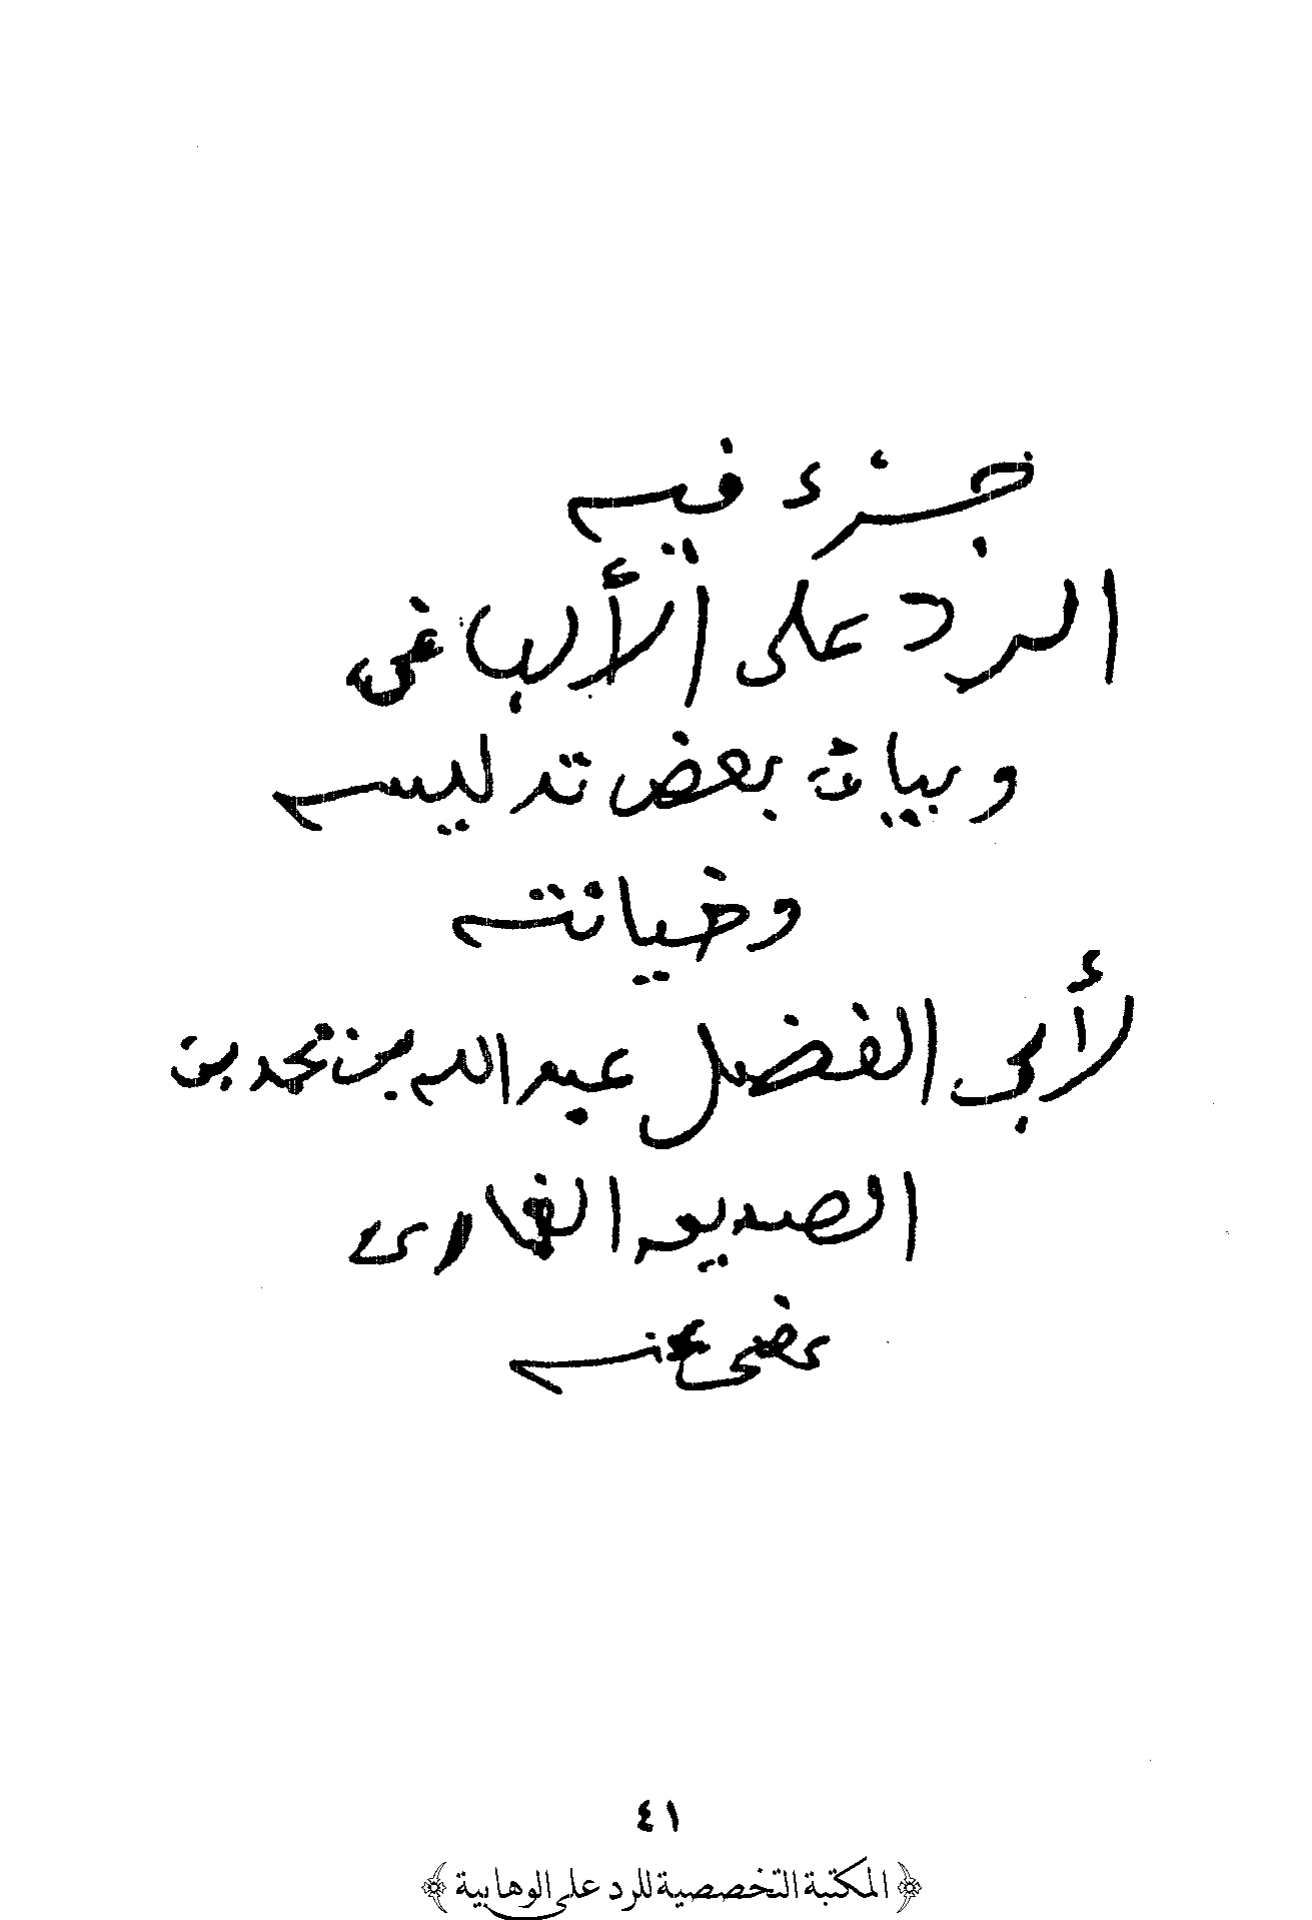 جزء فيه
الرد على الألباني
وبيان بعض تدليسه
وخيانته
لأبي الفضل عبد الله بن محمد بن
الصديق الغمارى
عفى عنه
٤١
﴿المكتبة التخصصية للرد على الوهابية﴾